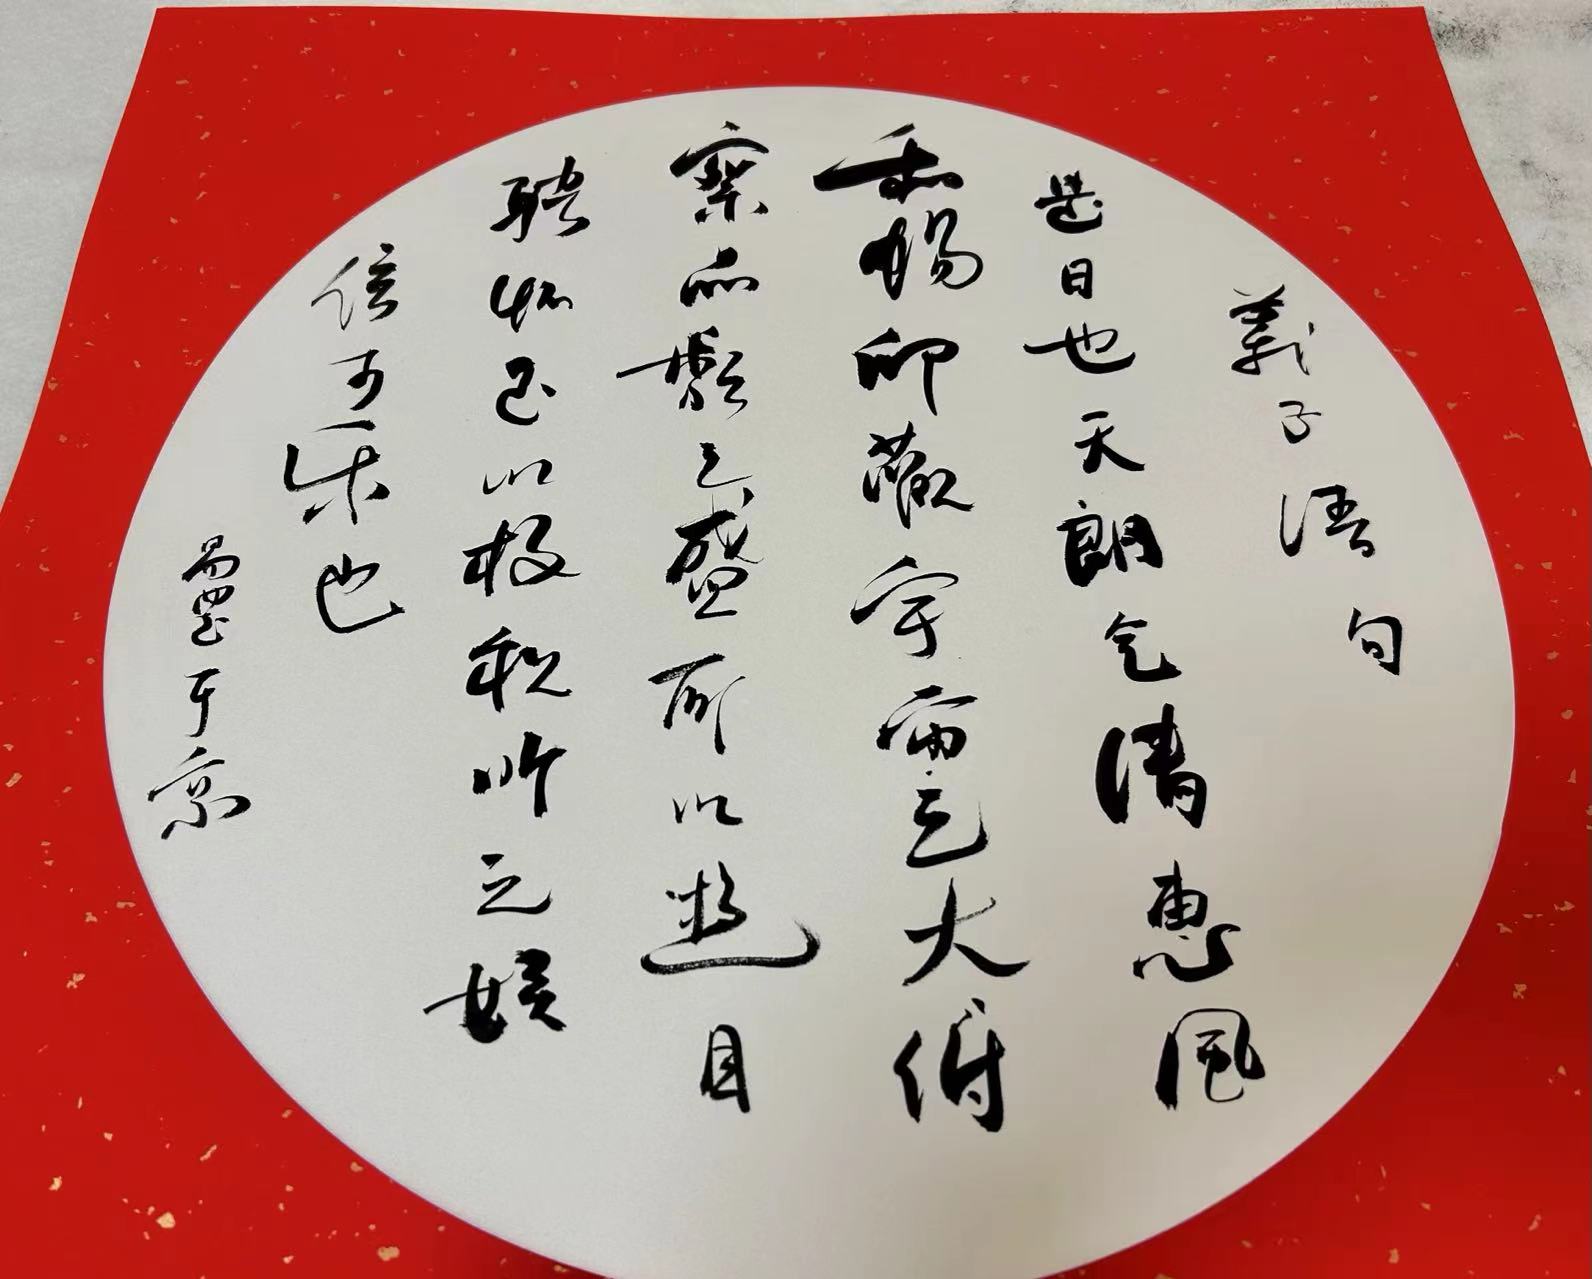 羲子语句
是日也天朗气清惠风
和畅仰觀宇宙之大俯
察品類之盛所以遊目
骋怀足以极视听之娱
信可乐也
于京